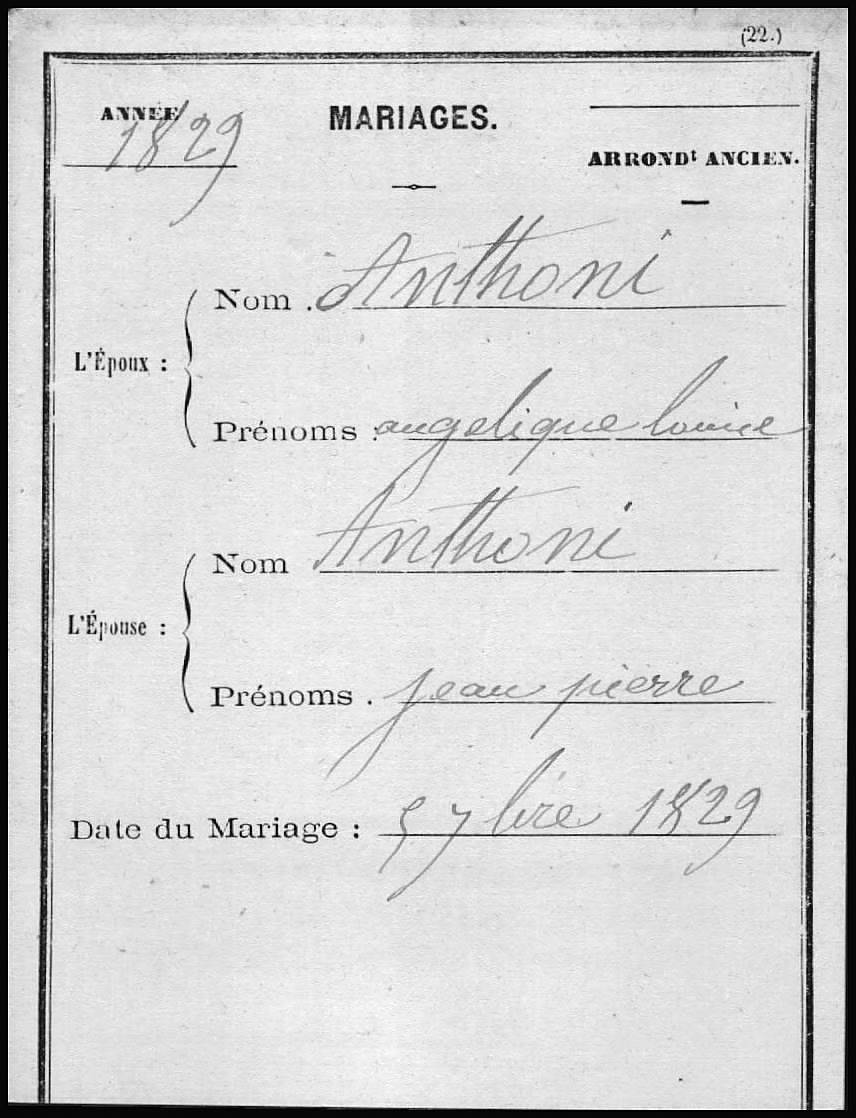 (22.)
ANNÉE
1829
MARIAGES.
ARRONDt ANCIEN.
L'Époux :
Nom . Anthoni
Prénoms : angelique louise
L'Épouse :
Nom Anthoni
Prénoms . jean pierre
Date du Mariage : 5 7bre 1829